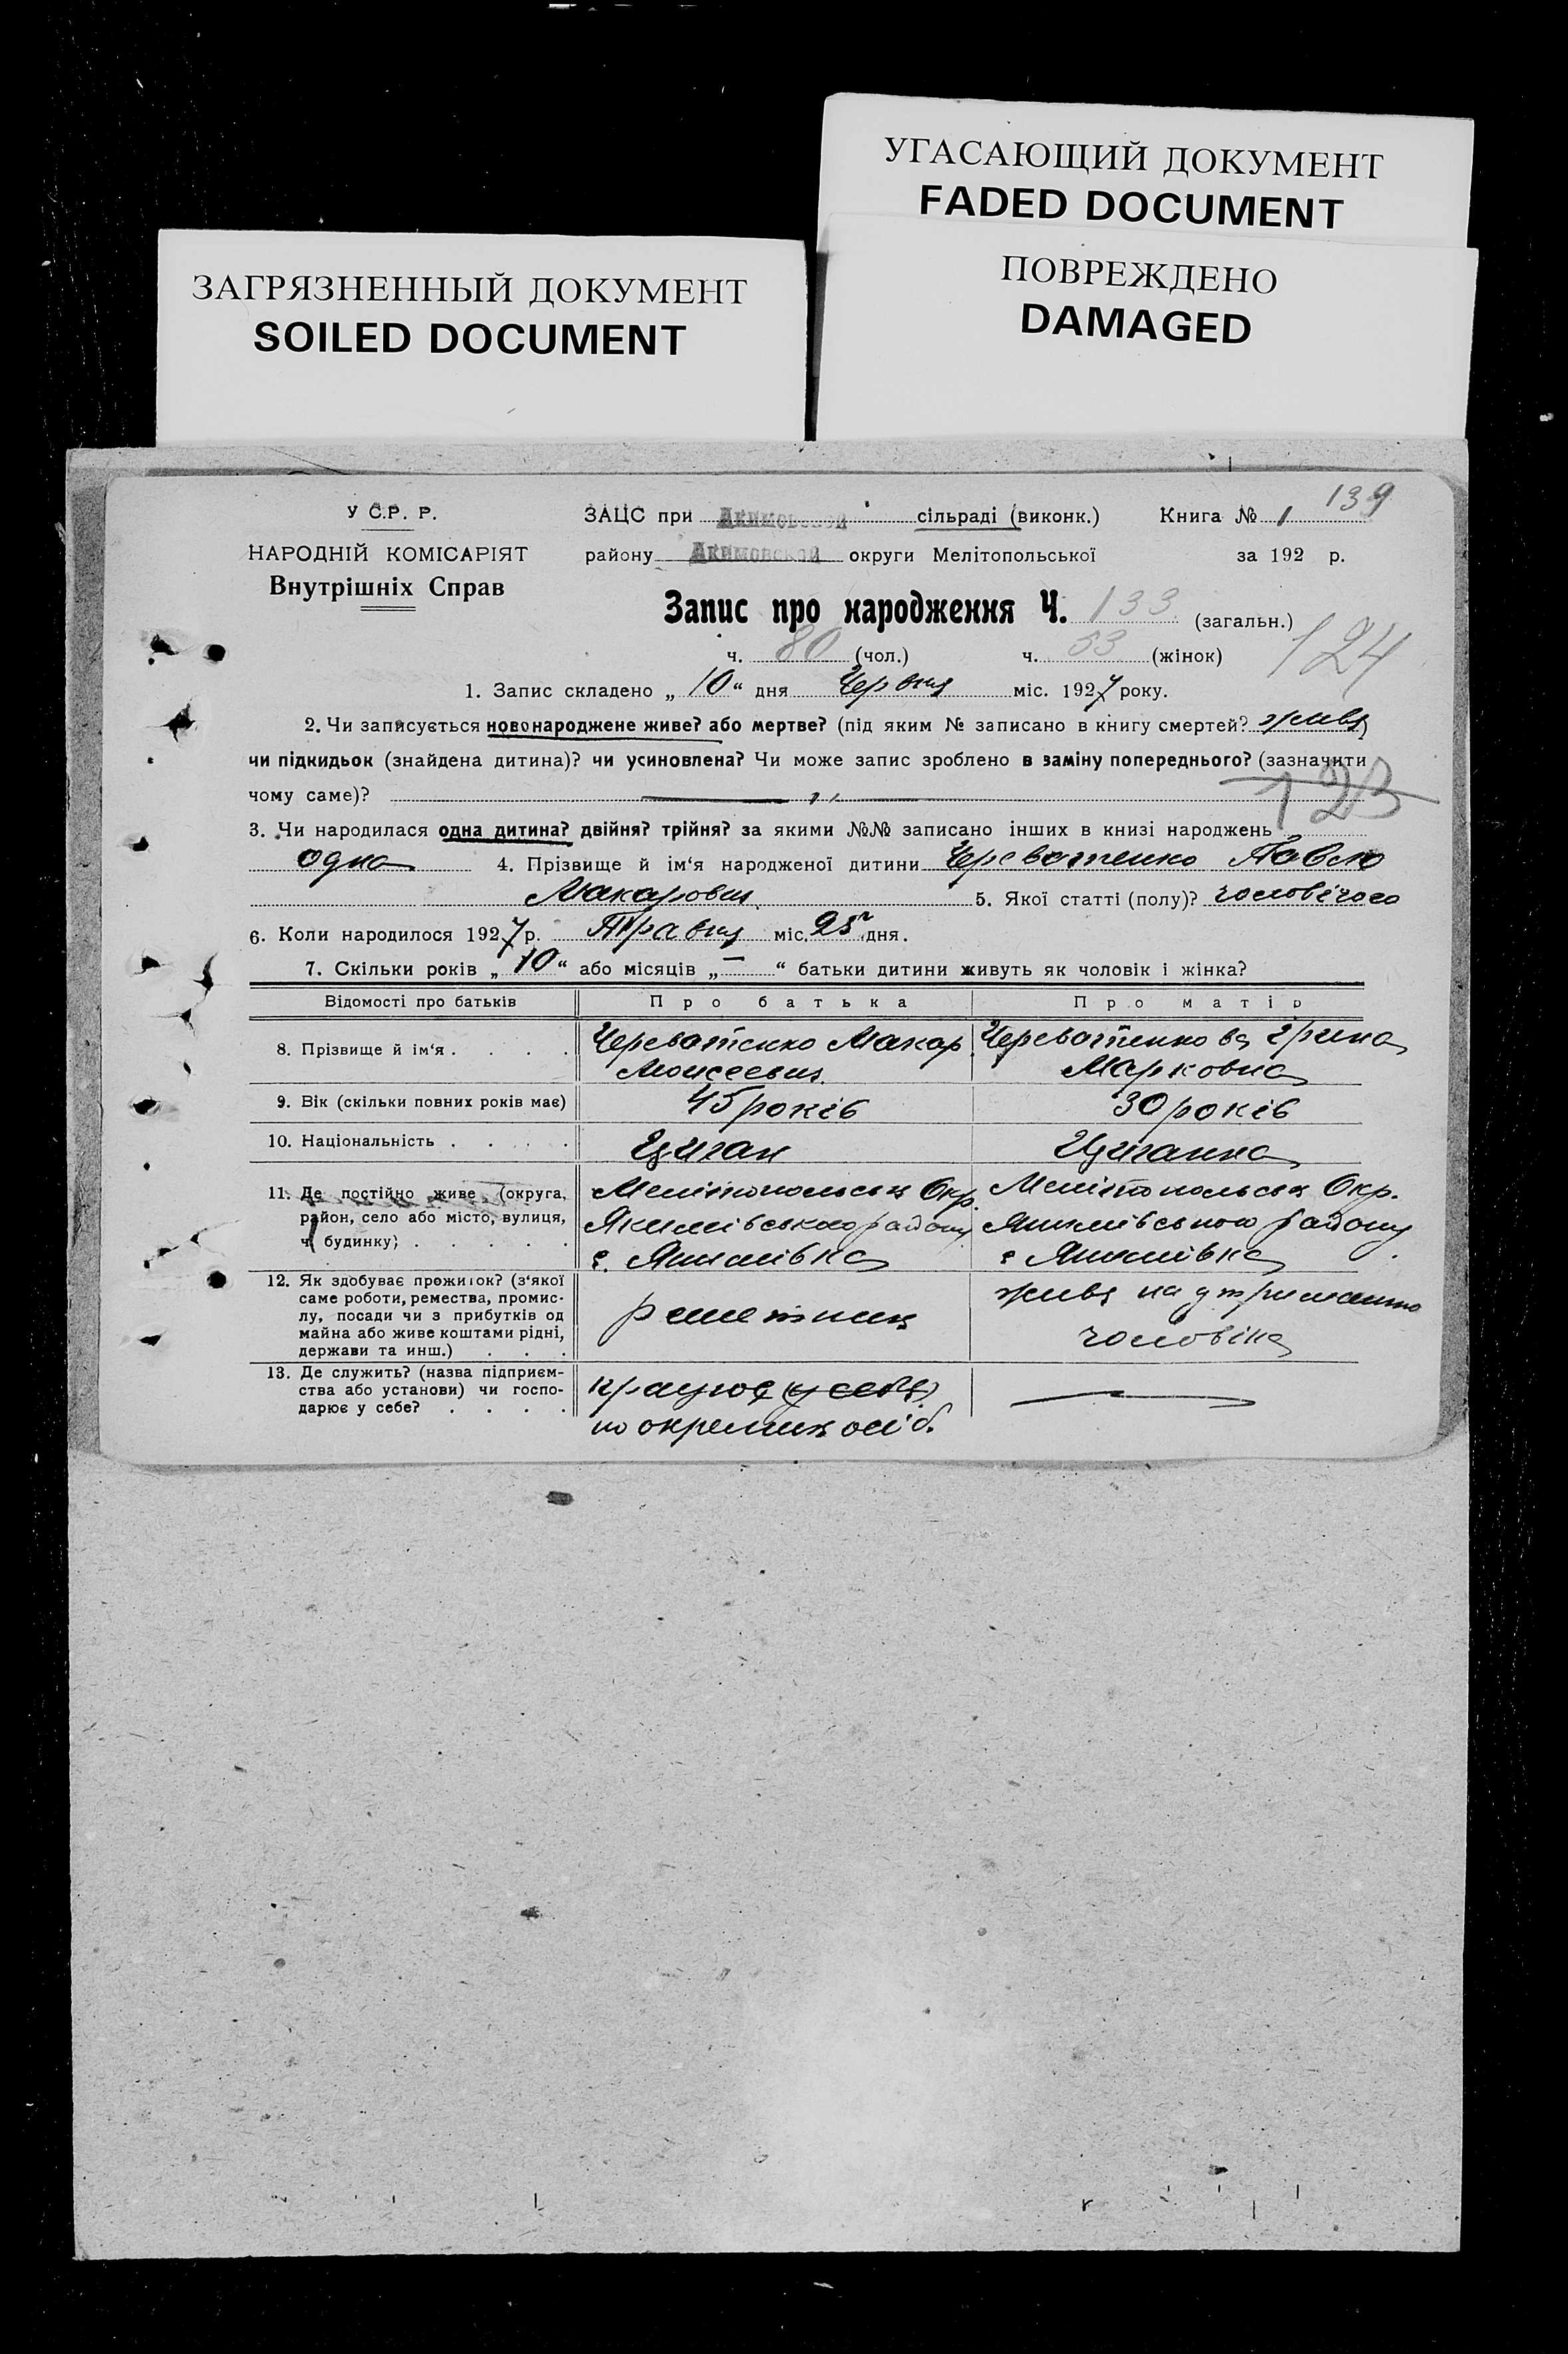 УГАСАЮЩИЙ ДОКУМЕНТ
FADED DOCUMENT
ЗАГРЯЗНЕННЫЙ ДОКУМЕНТ
SOILED DOCUMENT
ПОВРЕЖДЕНО
DAMAGED
139
У С.Р. Р.
НАРОДНІЙ КОМІСАРІЯТ
Внутрішніх Справ
ЗАЦС при Акимовской сільраді (виконк.) Книга № 1
району Акимовской округи Мелітопольської за 192 р.
Запис про народження Ч. 133 (загальн.)
124
ч. 80 (чол.) ч. 53 (жінок)
1. Запис складено „ 10 “ дня Червня міс. 1927 року.
2. Чи записується новонароджене живе? або мертве? (під яким № записано в книгу смертей? живе)
чи підкидьок (знайдена дитина)? чи усиновлена? Чи може запис зроблено в заміну попереднього? (зазначити
чому саме)? 123
3. Чи народилася одна дитина? двійня? трійня? за якими №№ записано інших в книзі народжень
одна 4. Прізвище й ім‘я народженої дитини Череватенко Павло
Макарович 5. Якої статті (полу)? чоловічого
6. Коли народилося 1927 р. Травня міс. 25 дня.
7. Скільки років „ 10 “ або місяців „ — “ батьки дитини живуть як чоловік і жінка?
Відомості про батьків Про батька Про матір
8. Прізвище й ім‘я . . . . Череватенко Макар Череватенкова
Моисеевич Марковна
9. Вік (скільки повних років має) 45 років 30 років
10. Національність . . . . Циган Циганка
11. Де постійно живе (округа, Мелітопольськ Окр. Мелітопольськ Окр.
район, село або місто, вулиця, Якимівського району Якимівського району
ч. будинку) . . . . . с. Якимівка с Якимівка
12. Як здобуває прожиток? (з‘якої
саме роботи, ремества, промис-
лу, посади чи з прибутків од
майна або живе коштами рідні,
держави та инш.) . . .
решетник
живе на утриманню
чоловіка
13. Де служить? (назва підприєм-
ства або установи) чи госпо-
дарює у себе? . . . .
працює (у себе)
по окремих осіб.